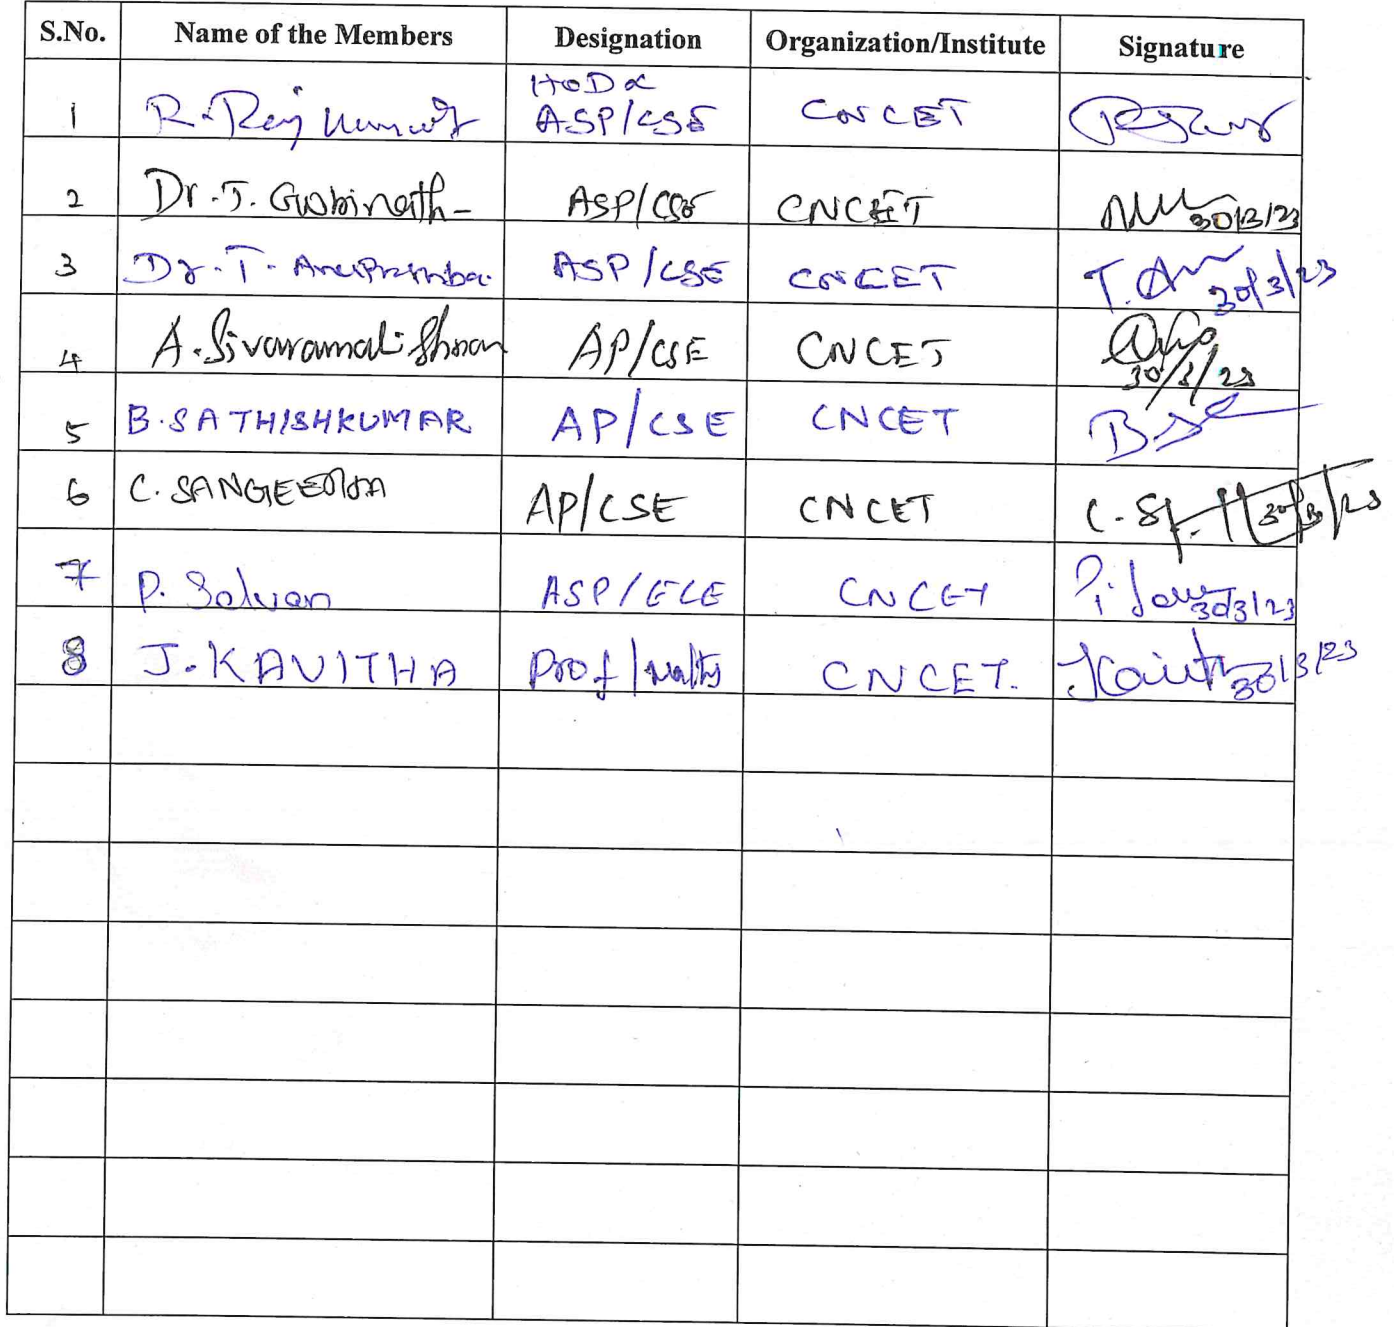 S.No. Name of the Members Designation Organization/Institute Signature
HOD &
1 R. Rajkumar ASP/CSE CNCET
2 Dr. J. Gobinath ASP/CSE CNCET 30/3/23
3 Dr. T. ASP/CSE CNCET T. 30/3/23
4 A. Sivaramakrishnan AP/CSE CNCET
30/3/23
5 B. SATHISHKUMAR AP/CSE CNCET
6 C. SANGEETHA AP/CSE CNCET C. 30/3/23
7 P. Selvan ASP/ECE CNCET 30/3/23
8 J. KAVITHA Prof/maths CNCET. 30/3/23